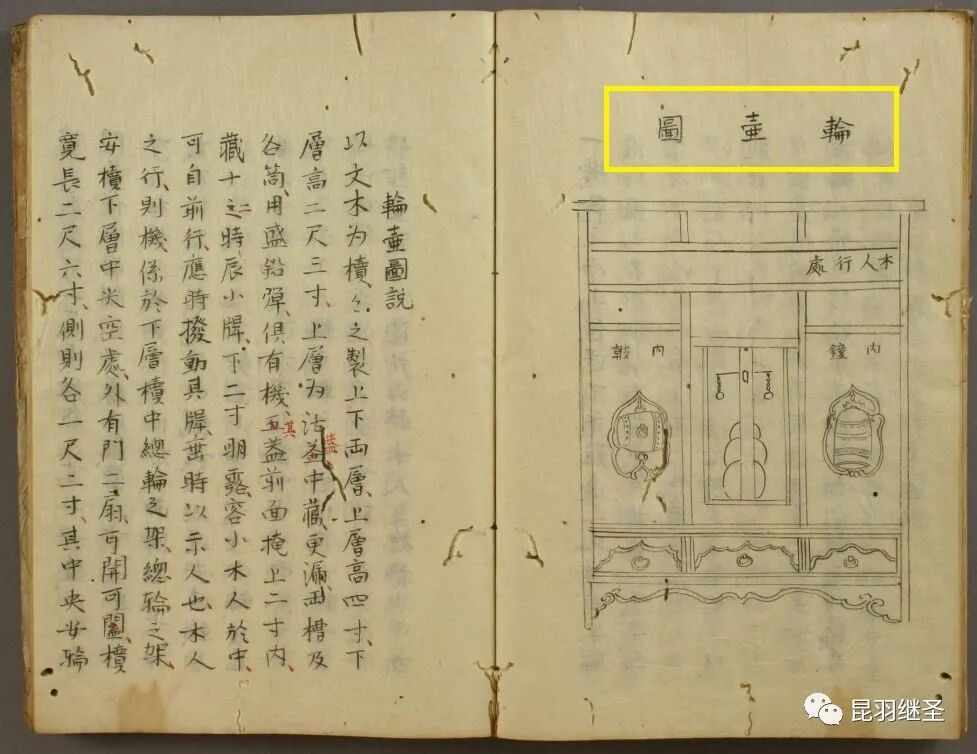 輪壺圖
木人行處
内鐘
内鼓
輪壺圖說
以文木为櫝〻之製上下両層上層高四寸下
層高二尺三寸、上層为活益蓋中藏更漏両槽及
各筒、用盛鉛彈、俱有機、其蓋前面掩上二寸内、
藏十二時辰小牌、下二寸明露容小木人於中、
可自前行、應時撥動其牌、垂時以示人也、木人
之行、則機係於下層櫝中總輪之架、總輪之架、
安櫝下層中尖空處、外有門二扇、可開可闔、櫝
寛長二尺六寸、側則各一尺二寸、其中央安輪
昆羽继圣